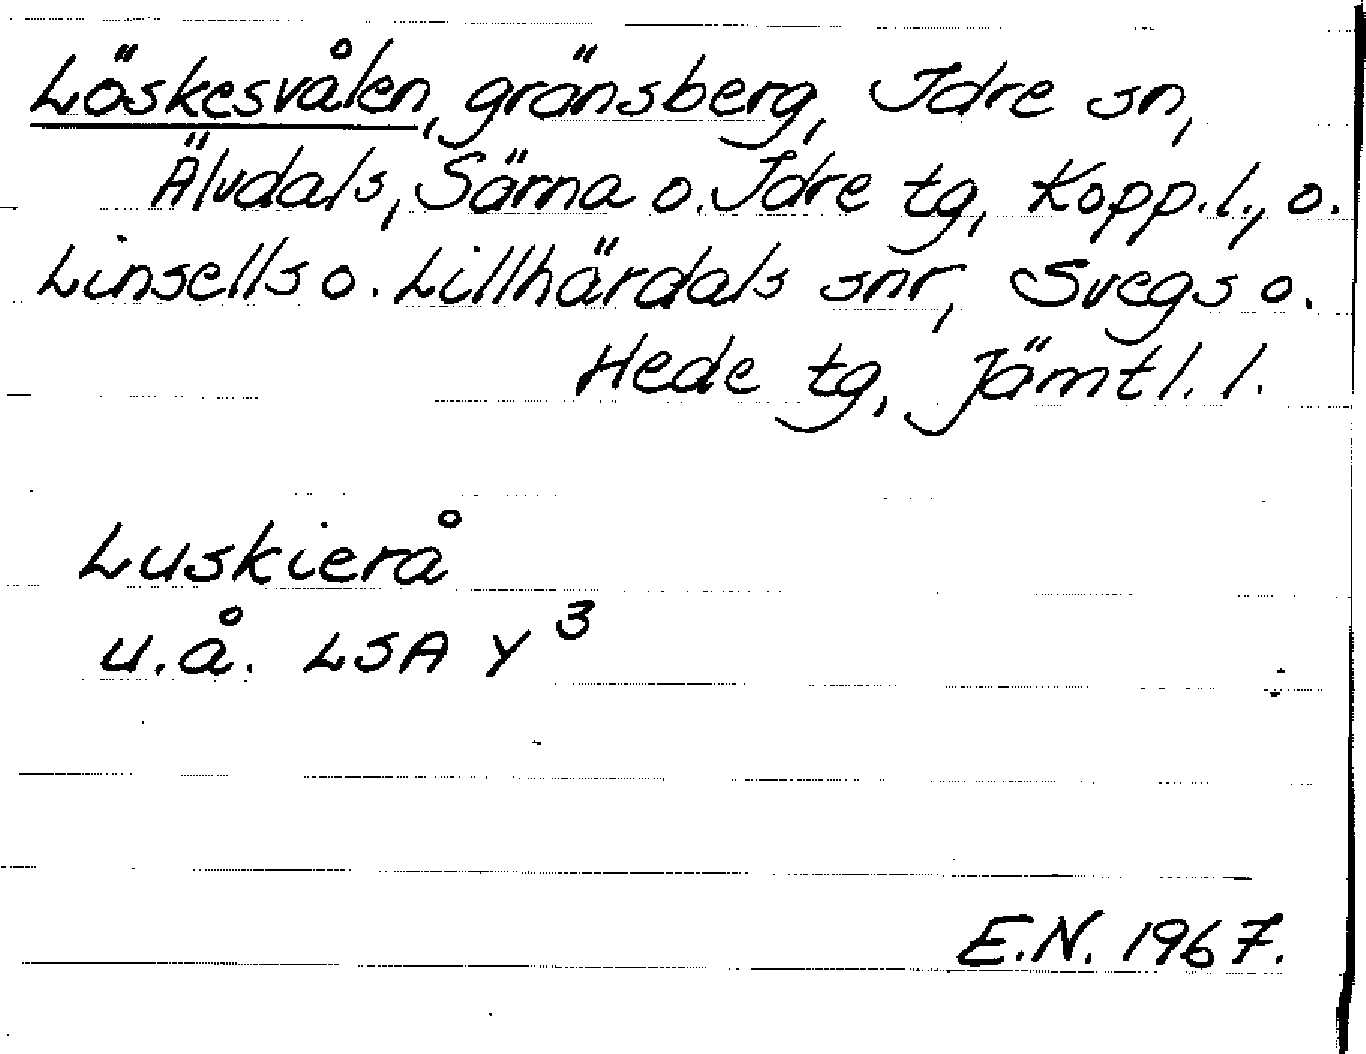 Löskesvålen, gränsberg, Idre sn,
Älvdals, Särna o. Idre tg, Kopp. l., o.
Linsells o. Lillhärdals snr, Svegs o.
Hede tg, Jämtl. l.
Luskierå
u.å. LSA Y 3
E.N. 1967.